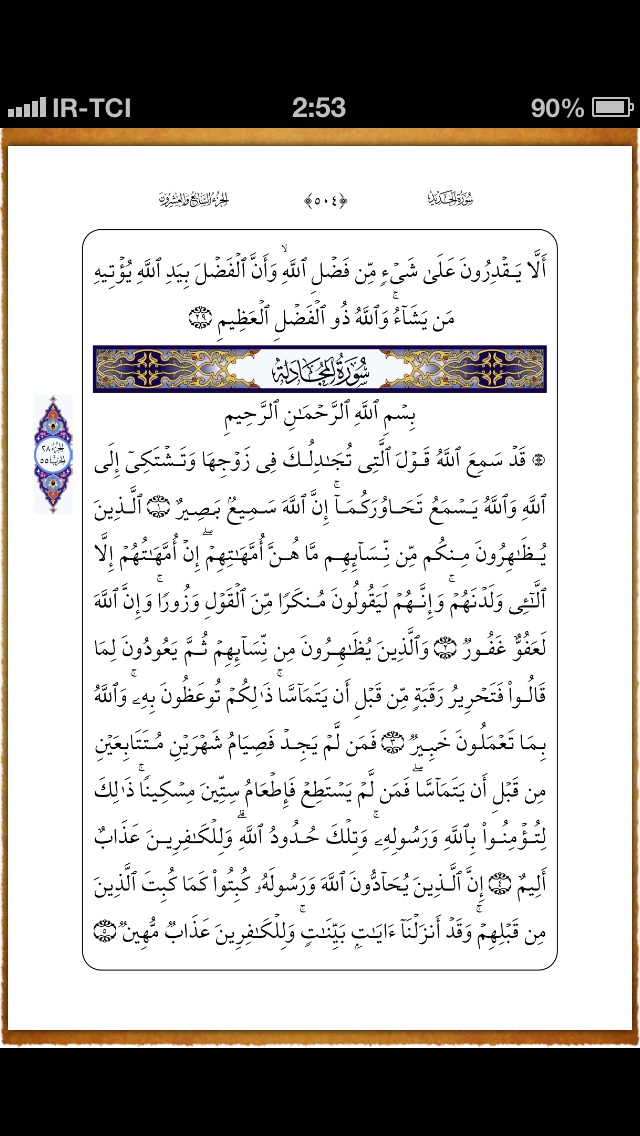 IR-TCI 2:53 90%
سُورَةُ الحَدِيدِ ﴿٥٠٤﴾ الجُزْءُ السَّابِعُ وَالعِشْرُونَ
أَلَّا يَقْدِرُونَ عَلَىٰ شَىْءٍ مِّن فَضْلِ ٱللَّهِ ۙ وَأَنَّ ٱلْفَضْلَ بِيَدِ ٱللَّهِ يُؤْتِيهِ
مَن يَشَآءُ ۚ وَٱللَّهُ ذُو ٱلْفَضْلِ ٱلْعَظِيمِ ٢٩
سُورَةُ المُجَادلَة
بِسْمِ ٱللَّهِ ٱلرَّحْمَـٰنِ ٱلرَّحِيمِ
۞ قَدْ سَمِعَ ٱللَّهُ قَوْلَ ٱلَّتِى تُجَـٰدِلُكَ فِى زَوْجِهَا وَتَشْتَكِىٓ إِلَى
ٱللَّهِ وَٱللَّهُ يَسْمَعُ تَحَاوُرَكُمَآ ۚ إِنَّ ٱللَّهَ سَمِيعٌۢ بَصِيرٌ ١ ٱلَّذِينَ
يُظَـٰهِرُونَ مِنكُم مِّن نِّسَآئِهِم مَّا هُنَّ أُمَّهَـٰتِهِمْ ۖ إِنْ أُمَّهَـٰتُهُمْ إِلَّا
ٱلَّـٰٓـِٔى وَلَدْنَهُمْ ۚ وَإِنَّهُمْ لَيَقُولُونَ مُنكَرًا مِّنَ ٱلْقَوْلِ وَزُورًا ۚ وَإِنَّ ٱللَّهَ
لَعَفُوٌّ غَفُورٌ ٢ وَٱلَّذِينَ يُظَـٰهِرُونَ مِن نِّسَآئِهِمْ ثُمَّ يَعُودُونَ لِمَا
قَالُوا۟ فَتَحْرِيرُ رَقَبَةٍ مِّن قَبْلِ أَن يَتَمَآسَّا ۚ ذَٰلِكُمْ تُوعَظُونَ بِهِۦ ۚ وَٱللَّهُ
بِمَا تَعْمَلُونَ خَبِيرٌ ٣ فَمَن لَّمْ يَجِدْ فَصِيَامُ شَهْرَيْنِ مُتَتَابِعَيْنِ
مِن قَبْلِ أَن يَتَمَآسَّا ۖ فَمَن لَّمْ يَسْتَطِعْ فَإِطْعَامُ سِتِّينَ مِسْكِينًا ۚ ذَٰلِكَ
لِتُؤْمِنُوا۟ بِٱللَّهِ وَرَسُولِهِۦ ۚ وَتِلْكَ حُدُودُ ٱللَّهِ ۗ وَلِلْكَـٰفِرِينَ عَذَابٌ
أَلِيمٌ ٤ إِنَّ ٱلَّذِينَ يُحَآدُّونَ ٱللَّهَ وَرَسُولَهُۥ كُبِتُوا۟ كَمَا كُبِتَ ٱلَّذِينَ
مِن قَبْلِهِمْ ۚ وَقَدْ أَنزَلْنَآ ءَايَـٰتٍۭ بَيِّنَـٰتٍ ۚ وَلِلْكَـٰفِرِينَ عَذَابٌ مُّهِينٌ ٥
الجزء ٢٨
الحزب ٥٥